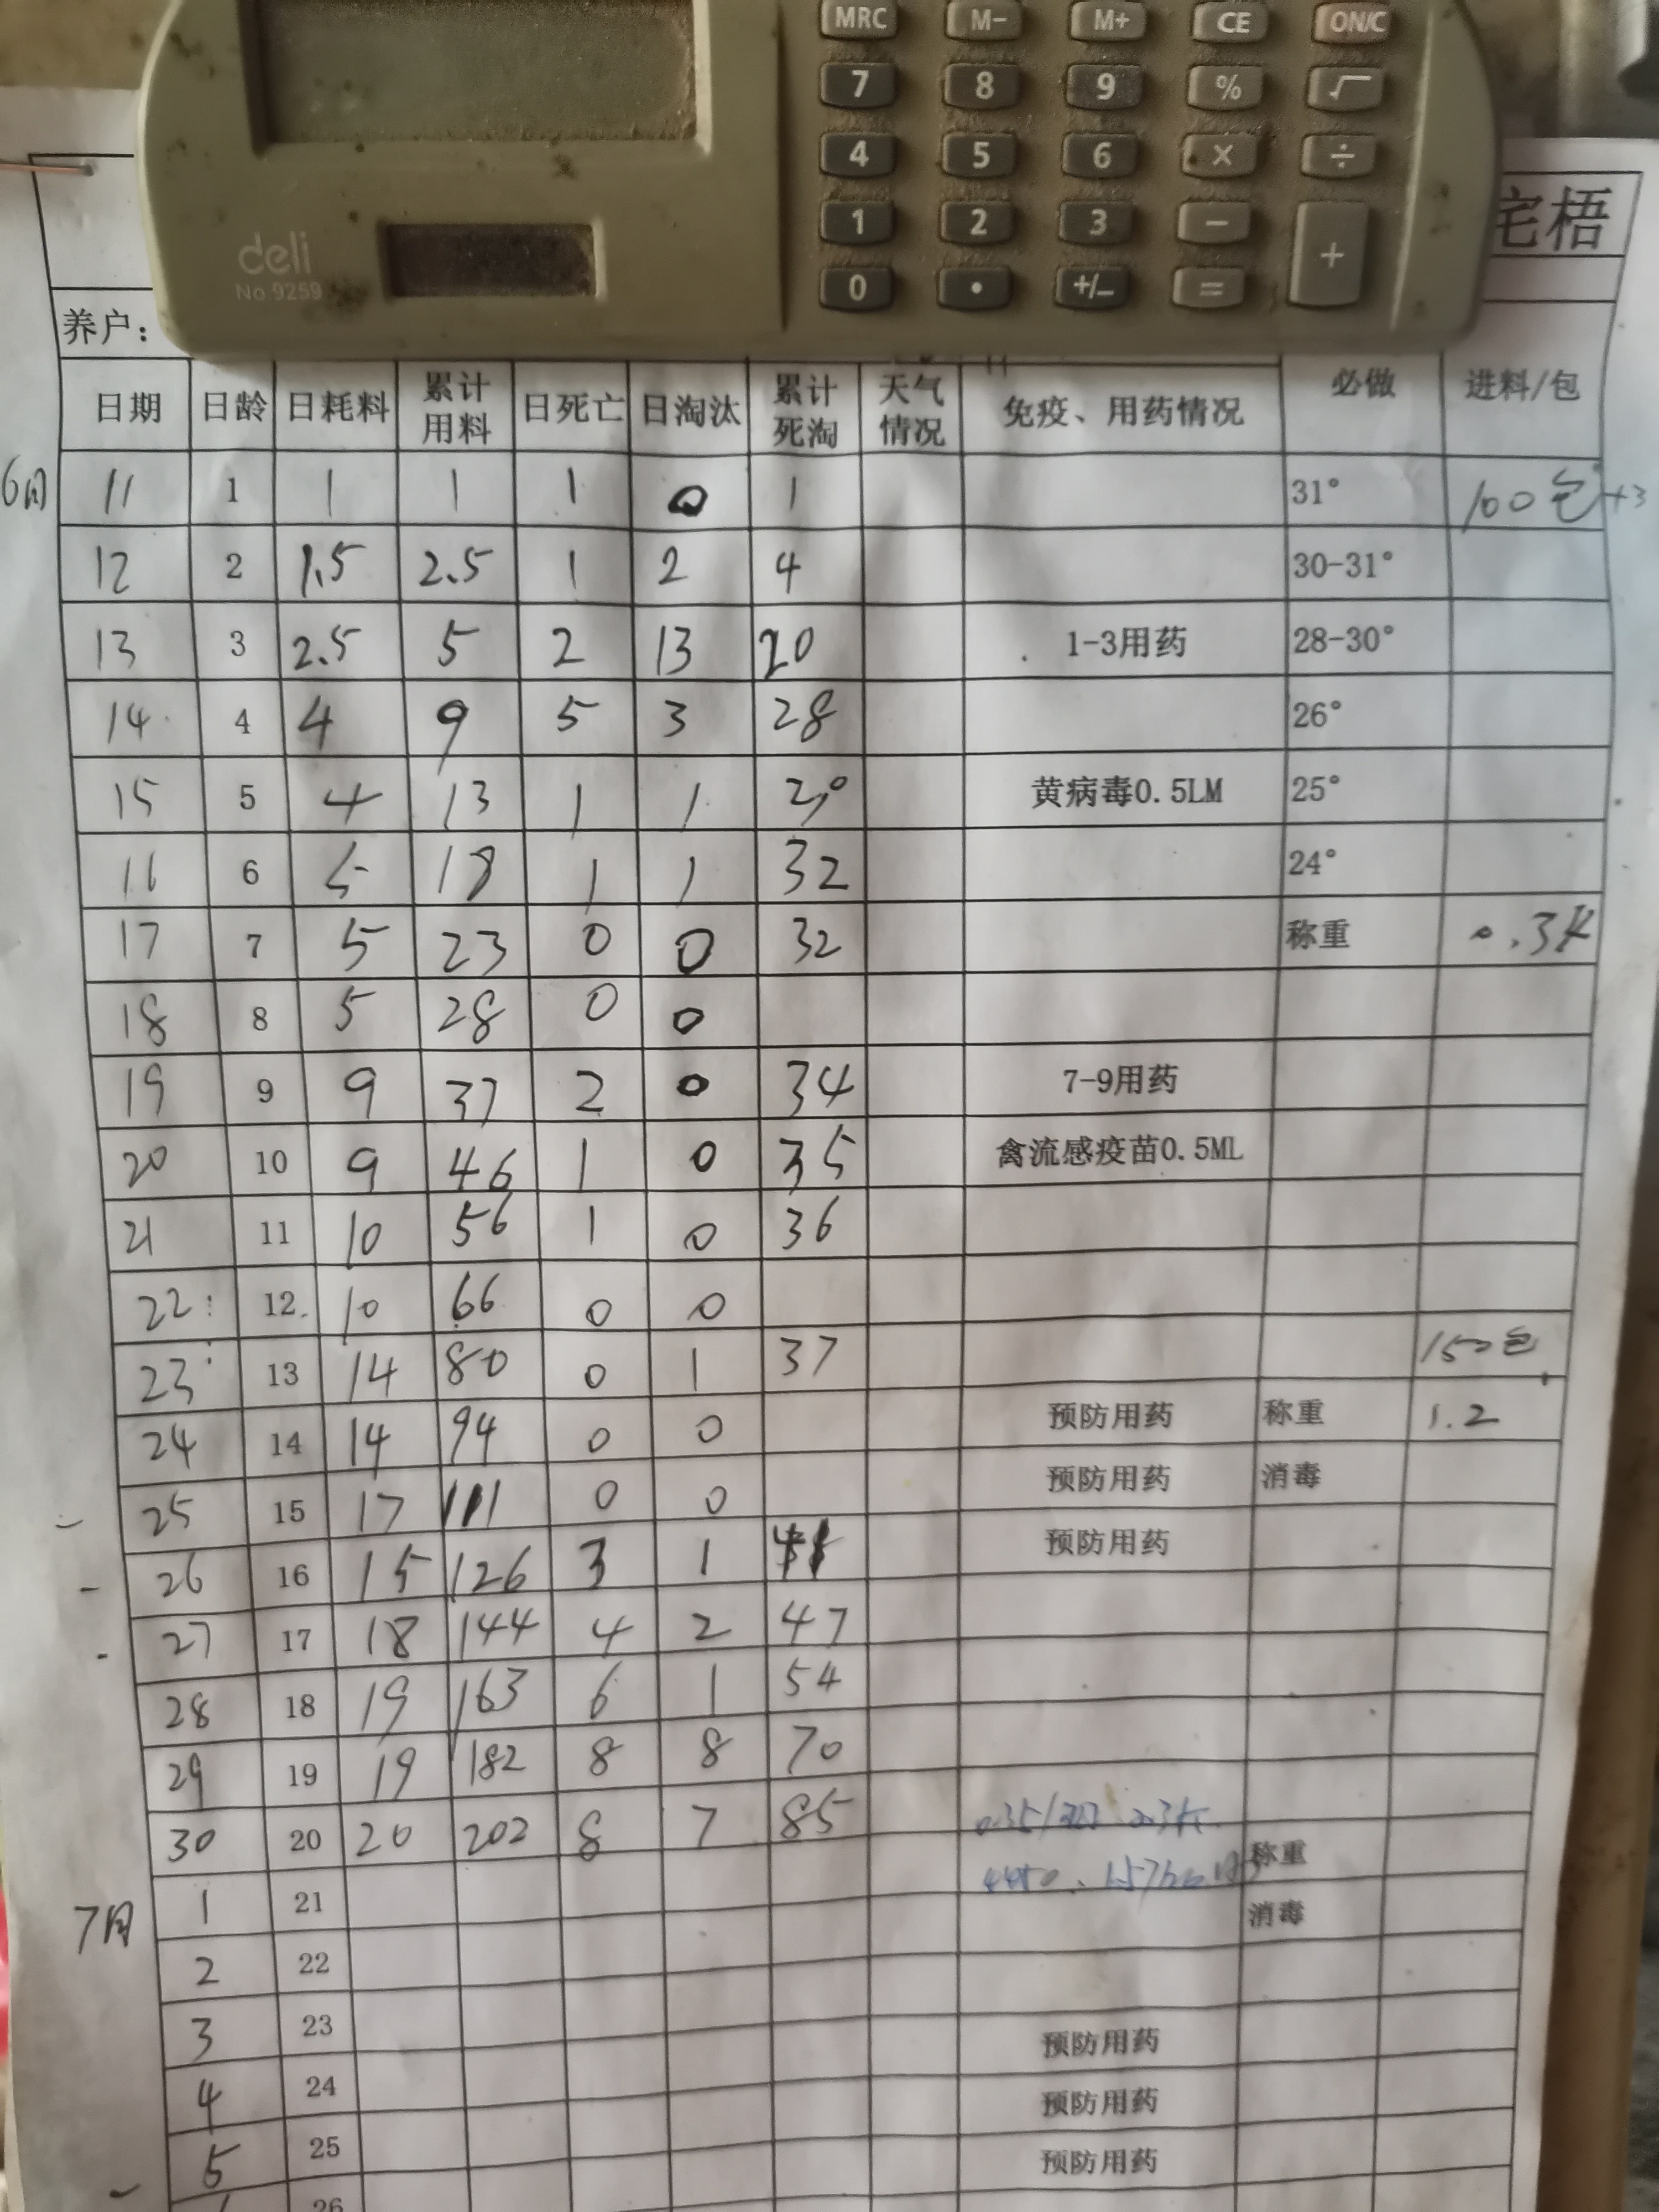 MRC M- M+ CE ON/C
7 8 9 % √
4 5 6 × ÷
1 2 3 − +
0 • +/− =
deli
No.9259
宅梧
养户：
日期 日龄 日耗料 累计用料 日死亡 日淘汰 累计死淘 天气情况 免疫、用药情况 必做 进料/包
6月 11 1 1 1 1 0 1 31° 100包+3
12 2 1.5 2.5 1 2 4 30-31°
13 3 2.5 5 2 13 20 1-3用药 28-30°
14 4 4 9 5 3 28 26°
15 5 4 13 1 1 30 黄病毒0.5LM 25°
16 6 5 18 1 1 32 24°
17 7 5 23 0 0 32 称重 0.3斤
18 8 5 28 0 0
19 9 9 37 2 0 34 7-9用药
20 10 9 46 1 0 35 禽流感疫苗0.5ML
21 11 10 56 1 0 36
22 12 10 66 0 0
23 13 14 80 0 1 37 150包
24 14 14 94 0 0 预防用药 称重 1.2
25 15 17 111 0 0 预防用药 消毒
26 16 15 126 3 1 41 预防用药
27 17 18 144 4 2 47
28 18 19 163 6 1 54
29 19 19 182 8 8 70
30 20 20 202 8 7 85 称重
7月 1 21 消毒
2 22
3 23 预防用药
4 24 预防用药
5 25 预防用药
26